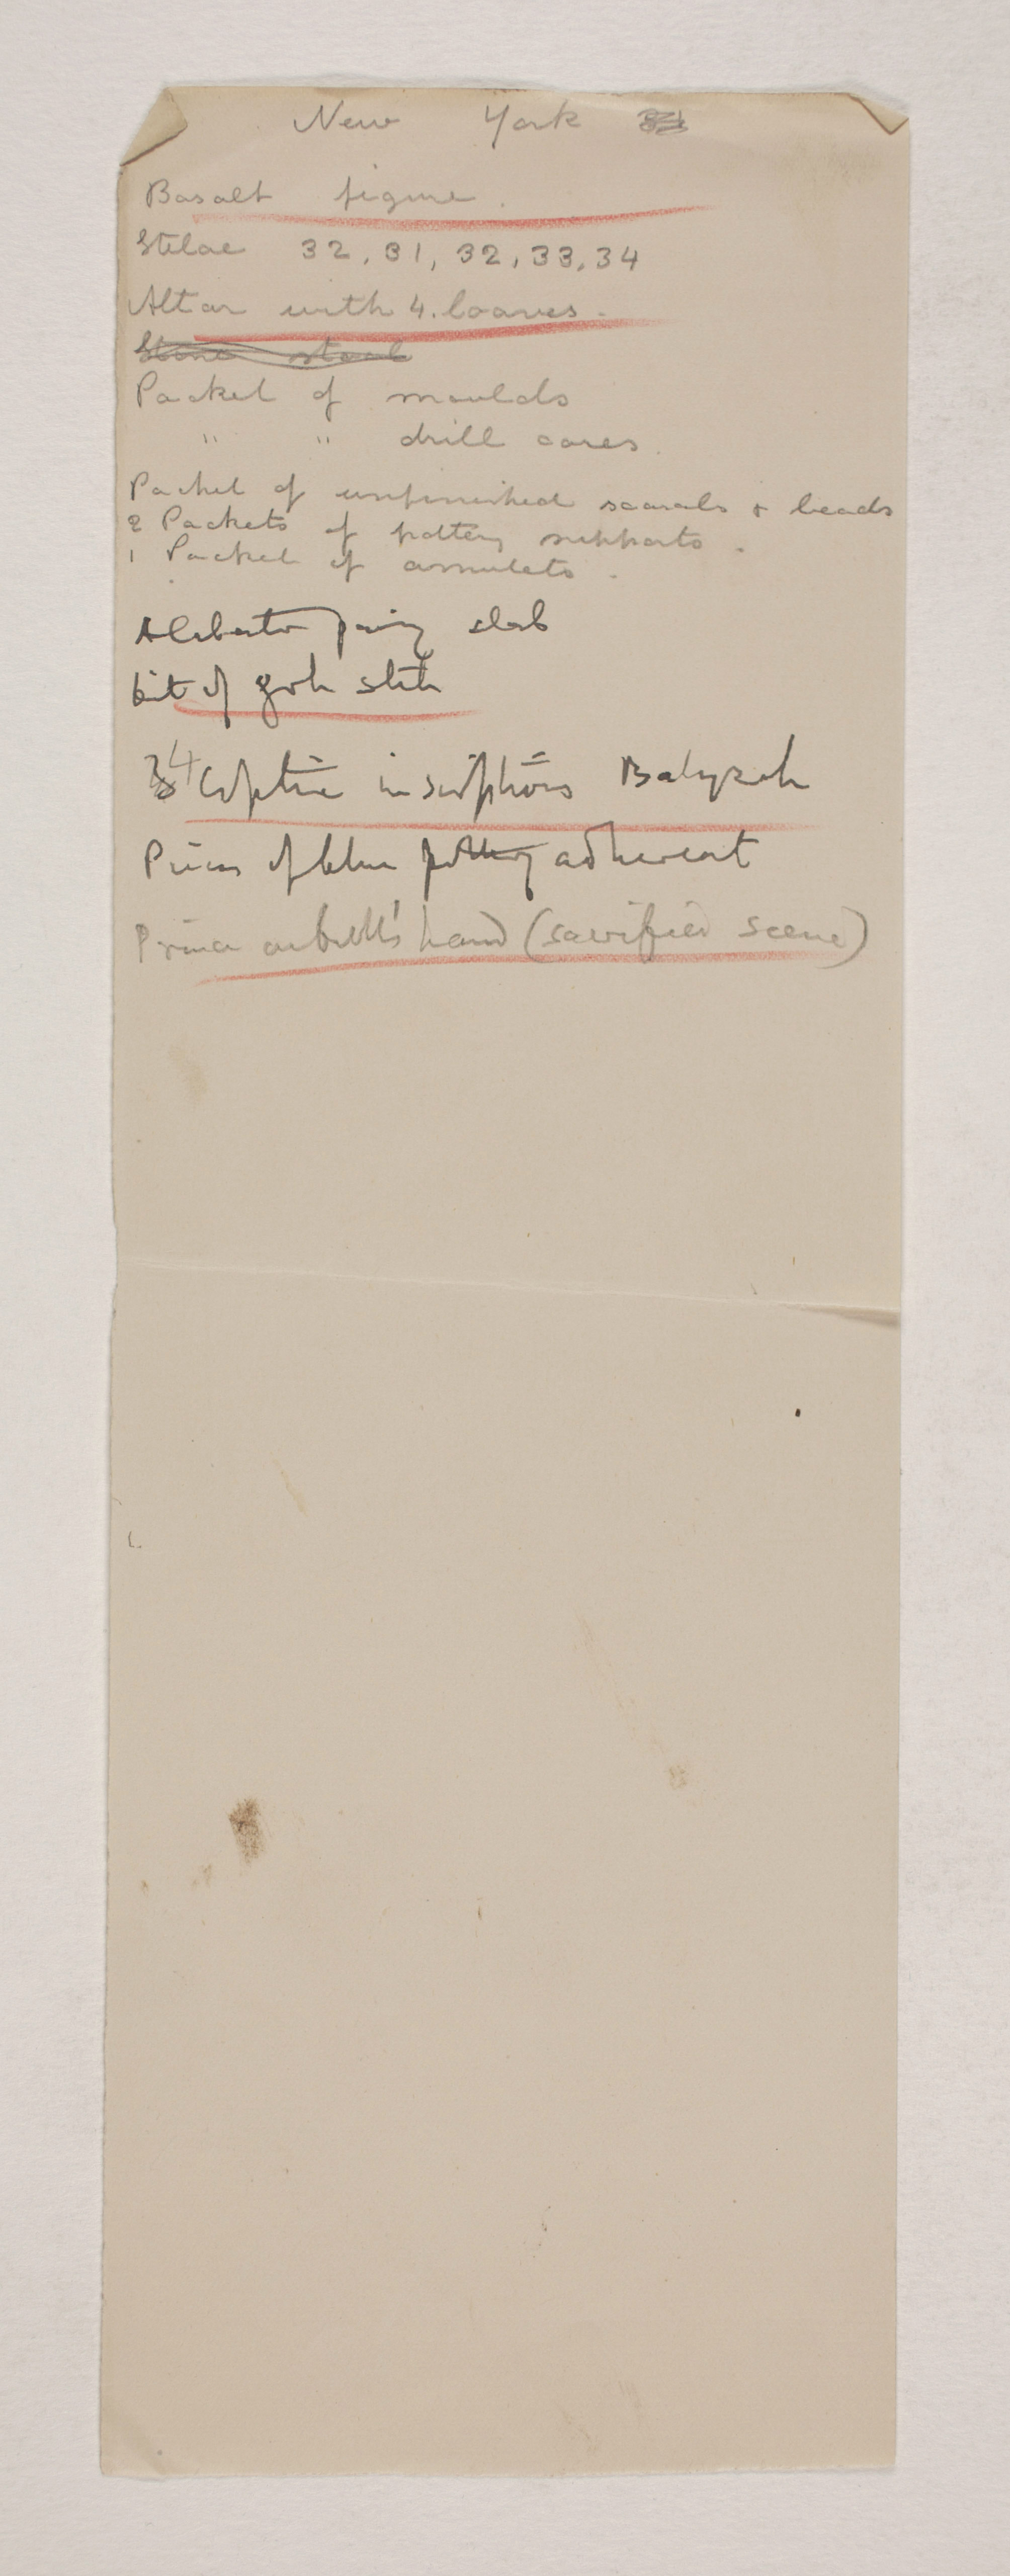 New York
Basalt figure.
Stelae 32, 31, 32, 33, 34
Altar with 4. loaves.
Stone stool
Packet of moulds
" " drill cores.
Packet of unfinished scarabs & beads
2 Packets of pottery supports.
1 Packet of amulets.
Alabaster paving slab
bit of stele
4 Coptic inscriptions
Pieces of blue pottery adherent
Prince on bull's hand (sacrificial scene)